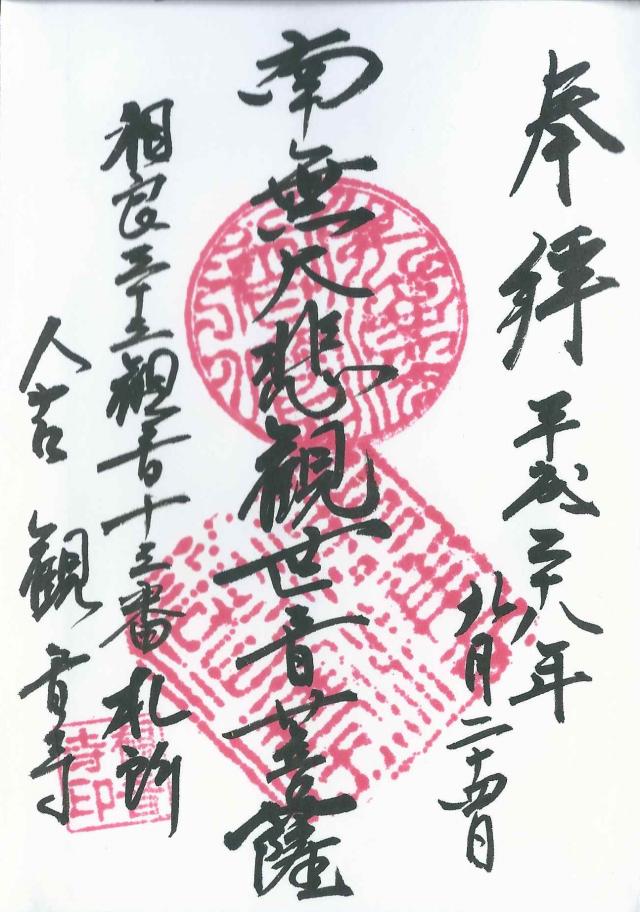 奉拝 平成二十八年
九月二十四日
南無大悲観世音菩薩
相良三十三観音十三番札所
人吉 観音寺
観音寺印